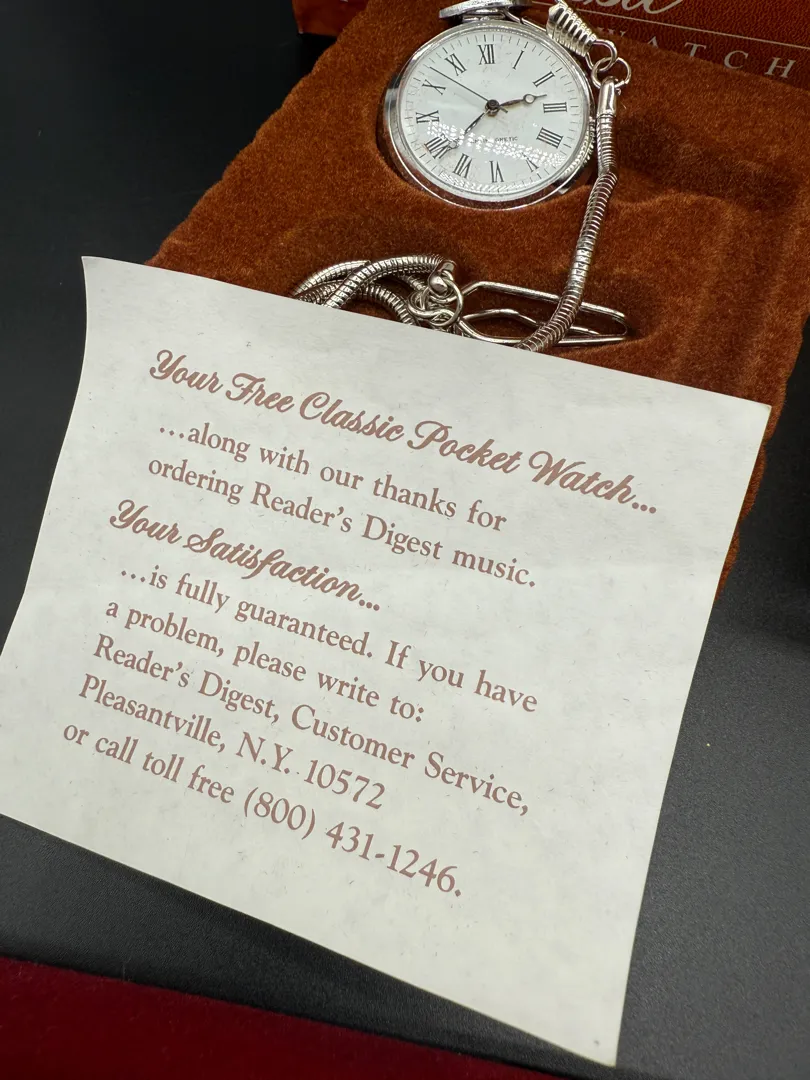 WATCH
XII
I
II
III
IIII
V
VI
VII
VIII
IX
X
XI
Your Free Classic Pocket Watch...
...along with our thanks for
ordering Reader's Digest music.
Your Satisfaction...
...is fully guaranteed. If you have
a problem, please write to:
Reader's Digest, Customer Service,
Pleasantville, N.Y. 10572
or call toll free (800) 431-1246.